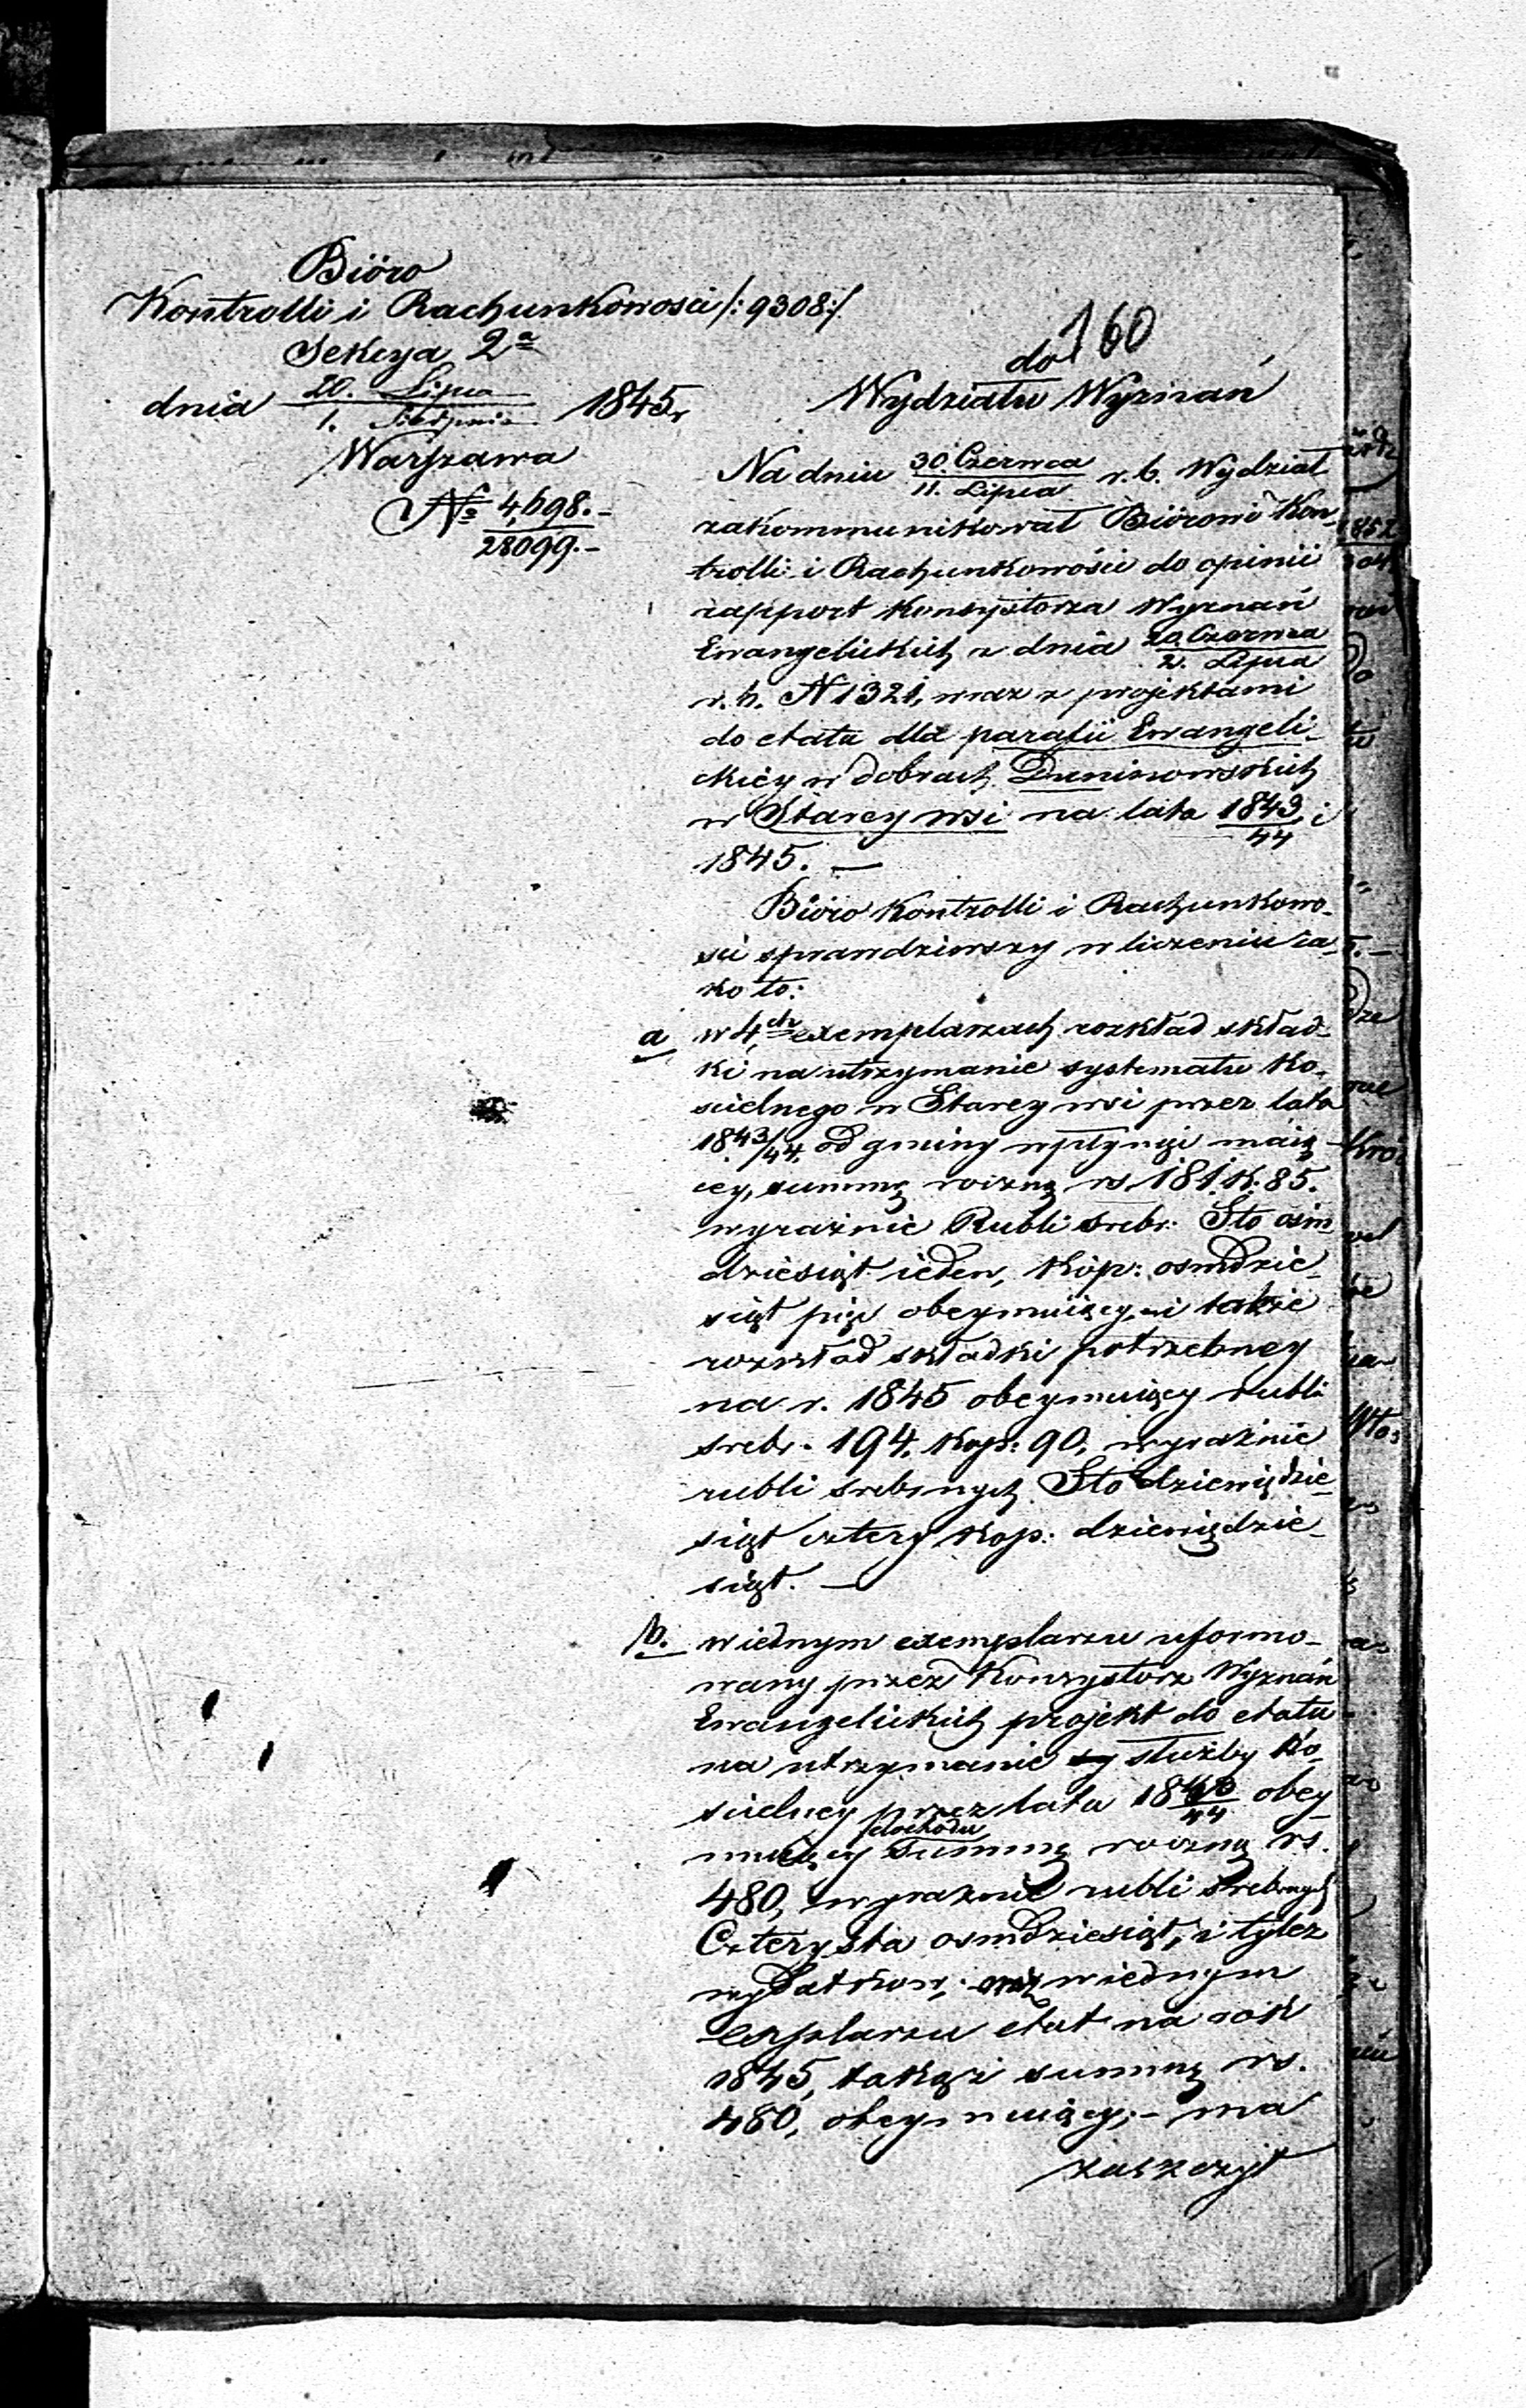 Biöro
Kontrolli i Rachunkowosci /:9308:/
Sekcya 2ª
dnia 20. Lipca / 1. Sierpnia 1845 r
Warszawa
№ 4,698.- / 28099.-
160
do
Wydziału Wyznań
Na dniu 30. Czerwca / 11. Lipca r. b. Wydział
zakommunikował Biörowi Kon-
trolli i Rachunkowości do opinii
rapport Konsystorza Wyznań
Ewangelickich z dnia 20. Czerwca / 2. Lipca
r. b. N 1321, wraz z projektami
do etatu dla parafii Ewangeli-
ckiéy w dobrach Duninowskich
w Starey wsi na lata 1843/44 i
1845. —
Biöro Kontrolli i Rachunkowo-
sci sprawdziwszy w liczeniu ia-
ko to:
a w 4ch exemplarzach rozkład skład-
ki na utrzymanie systematu Ko-
scielnego w Starey wsi przez lata
1843/44. od gminy wpłynąć maią-
cey, summę roczną rs 181. k. 85.
wyraźnie Rubli srebr: Sto osm
dziesiąt ieden, Kop: osmdzie-
siąt pięć obeymuiący, i także
rozkład składki potrzebney
na r. 1845 obeymuiący rubli
srebr. 194, Kop: 90, wyraźnie
rubli srebrnych Sto dziewiędzie-
siąt cztery Kop: dziewiędzie-
siąt. —
b. w iednym exemplarzu uformo-
wany przez Konsystorz Wyznań
Ewangelickich projekt do etatu
na utrzymanie sy służby Ko-
scielney przez lata 1843/44 obey-
dochodu
muiący summę roczną rs.
480, wyraźnie rubli srebrnych
Czterysta osmdziesiąt, i tyleż
wydatkow; w iednym
explarzu etat na rok
1845, takąż summę rs.
480, obeymuiący;- ma
zaszczyt